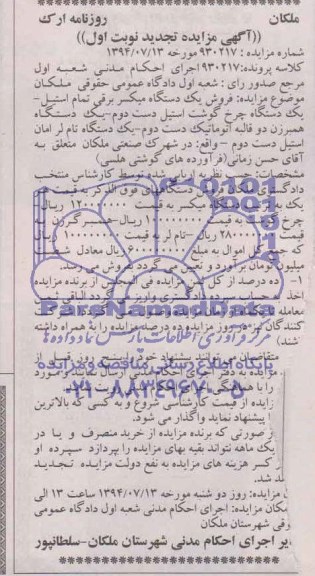 ملکان روزنامه ارک
((آگهی مزایده تجدید نوبت اول))
شماره مزایده : ۹۳۰۲۱۷ مورخه ۱۳۹۴/۰۷/۱۳
کلاسه پرونده:۹۳۰۲۱۷ اجرای احکام مدنی شعبه اول
مرجع صدور رای : شعبه اول دادگاه عمومی حقوقی ملکان
موضوع مزایده: فروش یک دستگاه میکسر برقی تمام استیل-
یک دستگاه چرخ گوشت استیل دست دوم-یک دستگاه
همبرزن دو قالبه اتوماتیک دست دوم-یک دستگاه تام لر امان
استیل دست دوم - واقع: در شهرک صنعتی ملکان متعلق به
آقای حسن زمانی(فرآورده های گوشتی هلسی)
مشخصات: حسب نظریه ارزیابی شده توسط کارشناس منتخب
دادگستری دستگاه های فوق الذکر به قیمت هر
یک به دستگاه میکسر به قیمت ۱۲۰۰۰۰۰۰۰ ریال
چرخ گوشت به قیمت ریال-همبرگرزن به
قیمت ریال -تام لر به قیمت ریال
که جمع کل اموال به مبلغ ریال معادل
میلیون تومان برآورد و تعیین می گردد بفروش می رسد.
۱- ده درصد از کل مزایده فی المجلس از برنده مزایده
اخذ به حساب سپرده دادگستری واریز می گردد الباقی
معامله
کنندگان روز مزایده ده درصد مزایده را به همراه داشته
باشند)
ParsNamadData
مرکز فرآوری اطلاعات پارس نماد داده ها
متقاضیان می توانند پیشنهاد خود را پنج روز قبل از
پایگاه اطلاع رسانی مناقصه و مزایده
مزایده به دفتر اجرای احکام مدنی ارسال نمایند
۰۲۱-۸۸۳۴۹۶۷۰-۵
مزایده از قیمت کارشناسی شروع و به کسی که بالاترین
پیشنهاد نماید واگذار می شود.
در صورتی که برنده مزایده از خرید منصرف و یا در
یک ماهه نتواند بقیه بهای مزایده را بپردازد سپرده او
کسر هزینه های مزایده به نفع دولت مزایده تجدید
شد.
مزایده: روز دو شنبه مورخه ۱۳۹۴/۰۷/۱۳ ساعت ۱۳ الی
مکان مزایده: اجرای احکام مدنی شعبه اول دادگاه عمومی
حقوقی شهرستان ملکان
مدیر اجرای احکام مدنی شهرستان ملکان-سلطانپور